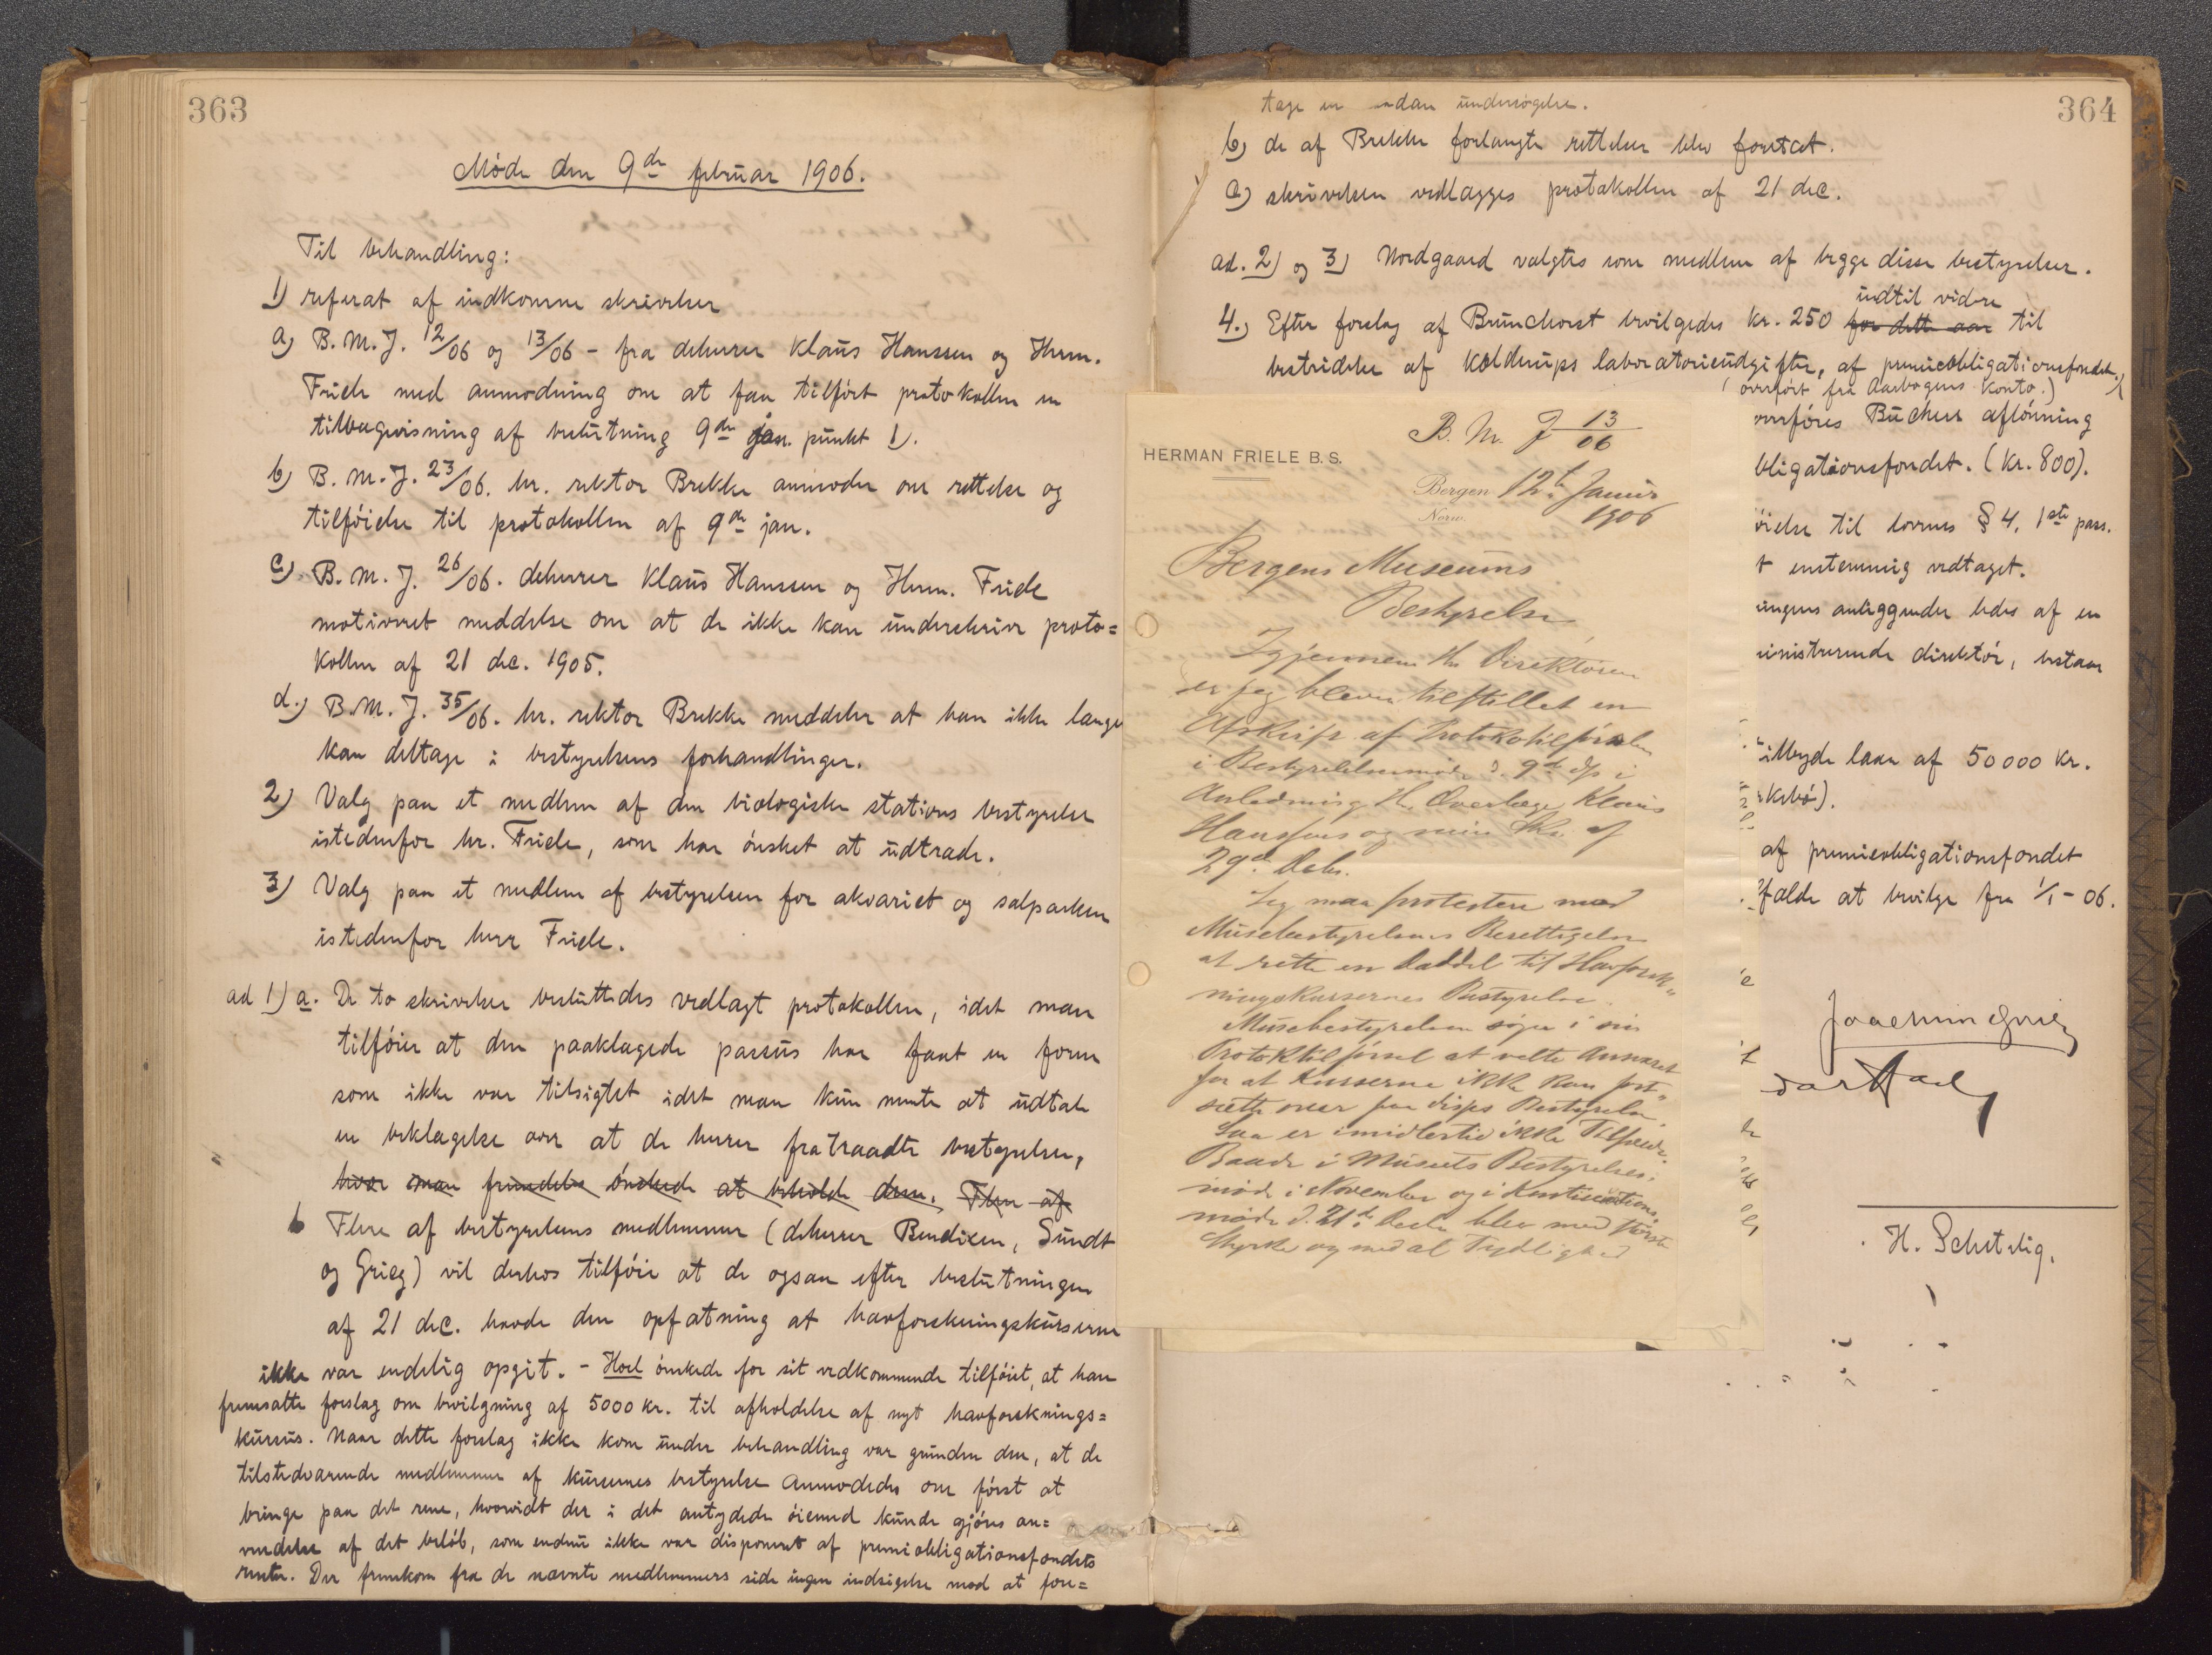 363
Møde den 9de februar 1906.
Til behandling:
1) referat af indkomne skrivelser
a) B. M. J. 12/06 og 13/06 - fra deherrer Klaus Hanssen og Herm.
Friele med anmodning om at faa tilført protokollen en
tilbagevisning af beslutning 9de jan. punkt 1).
b) B. M. J. 23/06. hr. rektor Brekke anmoder om rettelse og
tilføielse til protokollen af 9de jan.
c) B. M. J. 26/06. deherrer Klaus Hanssen og Herm. Friele
motiveret meddelse om at de ikke kan underskrive proto=
kollen af 21 dec. 1905.
d.) B. M. J. 35/06. hr. rektor Brekke meddeler at han ikke længer
kan deltage i bestyrelsens forhandlinger.
2) Valg paa et medlem af den biologiske stations bestyrelse
istedenfor hr. Friele, som har ønsket at udtræde.
3) Valg paa et medlem af bestyrelsen for akvariet og salparken
istedenfor herr Friele.
ad 1) a. De to skrivelser besluttedes vedlagt protokollen, idet man
tilføier at den paaklagede passus har faat en form
som ikke var tilsigtet idet man kun mente at udtale
en beklagelse over at de herrer fratraadte bestyrelsen,
hvor man fremdeles ønskede at beholde dem. Flere af
b Flere af bestyrelsens medlemmer (deherrer Bendixen, Sundt
og Grieg) vil derhos tilføie at de ogsaa efter beslutningen
af 21 dec. havde den opfatning at havforskningskurserne
ikke var endelig opgit. - Hoel ønskede for sit vedkommende tilføiet, at han
fremsatte forslag om bevilgning af 5000 kr. til afholdelse af nyt havforsknings=
kursus. Naar dette forslag ikke kom under behandling var grunden den, at de
tilstedværende medlemmer af kursernes bestyrelse anmodedes om først at
bringe paa det rene, hvorvidt der i det antydede øiemed kunde gjøres an=
vendelse af det beløb, som endnu ikke var disponeret af premieobligationsfondets
renter. Der fremkom fra de nævnte medlemmers side ingen indsigelse mod at fore=
364
tage en sadan undersøgelse.
b) de af Brekke forlangte rettelser blev foretat.
c) skrivelsen vedlægges protokollen af 21 dec.
ad. 2) og 3) Nordgaard valgtes som medlem af begge disse bestyrelser.
indtil videre
4.) Efter forslag af Brunchorst bevilgedes kr. 250 for dette aar til
bestridelse af Kolderups laboratorieudgifter, af premieobligationsfondet.
(overført fra Aarbogens konto.)
overføres Büchers aflønning
bligationsfondet. (kr. 800).
øielse til lovens § 4, 1ste pass.
t enstemmig vedtaget.
ingens anliggender ledes af en
inistrerende direktør, bestaar
ilbyde laan af 50000 kr.
rkebø).
af premieobligationsfondet
fælde at bevilge fra 1/1 - 06.
Joachim Grieg
H. Schetelig.
B. M. J 13/06
HERMAN FRIELE B. S.
Bergen 12t Januar
Norw. 1906
Bergens Museums
Bestyrelse
Igjennem Hr Direktøren
er jeg bleven tilstillet en
Afskrift af Protokoltilførslen
i Bestyrelsesmøde d. 9de ds i
Anledning Hr. Overlæge Klaus
Hanssens og min Skr. af
29de Decbr.
Jeg maa protestere mod
Musebestyrelsens Berettigelse
at rette en Daddel til Havforsk=
ningskursernes Bestyrelse.
Musebestyrelsen søger i sin
Protoktilførsel at vælte Ansvaret
for at Kurserne ikke kan fort=
sætte over paa disses Bestyrelse.
Saa er imidlertid ikke Tilfælde.
Baade i Musæets Bestyrelses-
møde i November og i
møde d. 21de Decbr blev med største
Styrke og med al Tydlighed